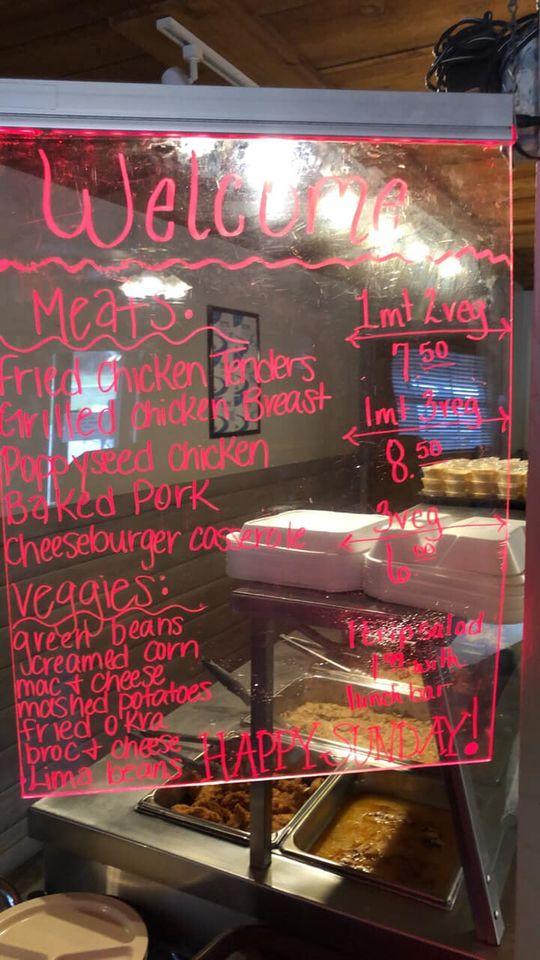 Welcome
Meats:
Fried Chicken Tenders
Grilled Chicken Breast
Poppyseed chicken
Baked Pork
Cheeseburger casserole
veggies:
green beans
creamed corn
mac + cheese
mashed potatoes
fried okra
broc + cheese
Lima beans
1mt 2veg
7.50
1mt 3veg
8.50
3veg
6.00
1 trip salad
with
lunch bar
HAPPY SUNDAY!